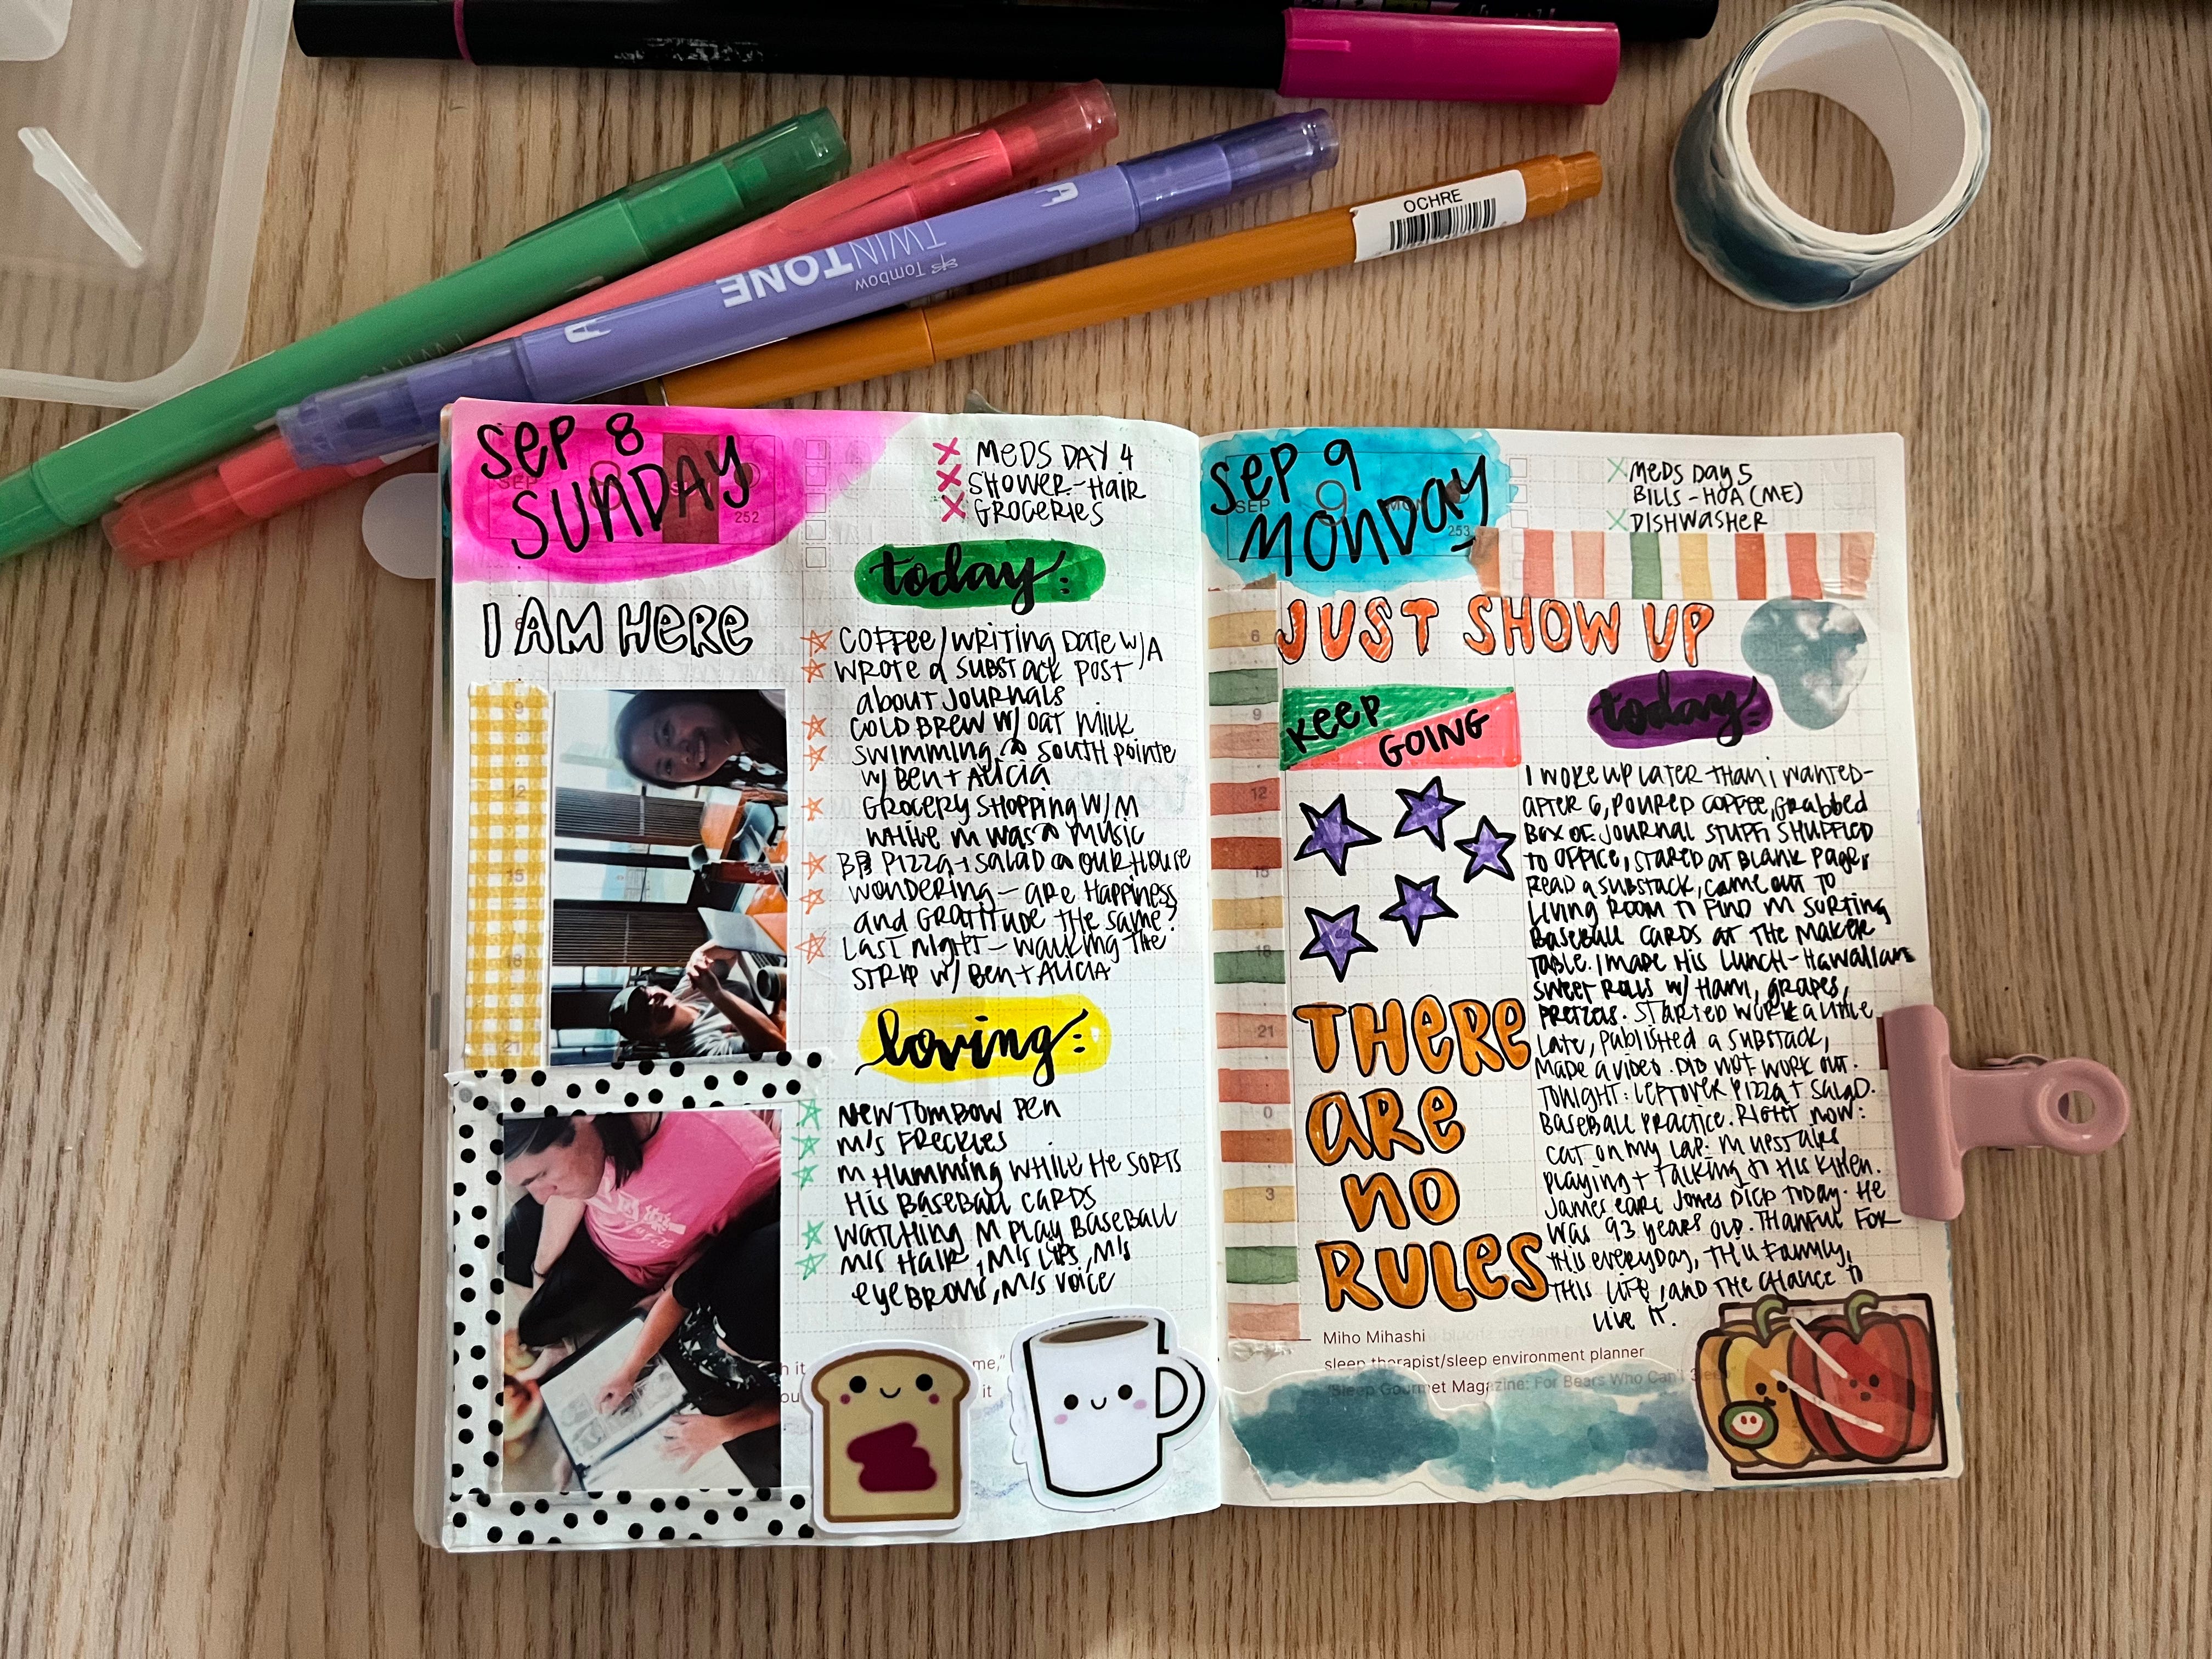 OCHRE
Tombow
TWINTONE
SEP 8
SUNDAY
252
X MEDS DAY 4
X SHOWER-HAIR
X GROCERIES
today:
I AM HERE
COFFEE/WRITING DATE W/A
WROTE A SUBSTACK POST
ABOUT JOURNALS
COLD BREW W/ OAT MILK
SWIMMING @ SOUTH POINTE
W/ BEN + ALICIA
GROCERY SHOPPING W/ M
WHILE M WAS @ MUSIC
PIZZA + SALAD @ OUR HOUSE
WONDERING - ARE HAPPINESS
AND GRATITUDE THE SAME?
LAST NIGHT - WALKING THE
STRIP W/ BEN + ALICIA
loving:
NEW TOMBOW PEN
M'S FRECKLES
M HUMMING WHILE HE SORTS
HIS BASEBALL CARDS
WATCHING M PLAY BASEBALL
M'S HAIR, M'S LIPS, M'S
EYEBROWS, M'S VOICE
h it
me,"
ou
it
SEP 9
MONDAY
SEP 9 MON
253
X MEDS DAY 5
BILLS - HOA (ME)
X DISHWASHER
JUST SHOW UP
KEEP
GOING
today:
I WOKE UP LATER THAN I WANTED -
AFTER 6, POURED COFFEE, GRABBED
BOX OF JOURNAL STUFF, SHUFFLED
TO OFFICE, STARED AT BLANK PAGE,
READ A SUBSTACK, CAME OUT TO
LIVING ROOM TO FIND M SORTING
BASEBALL CARDS AT THE MAKER
TABLE. I MADE HIS LUNCH - HAWAIIAN
SWEET ROLLS W/ HAM, GRAPES,
PRETZELS. STARTED WORK A LITTLE
LATE, PUBLISHED A SUBSTACK,
MADE A VIDEO. DID NOT WORK OUT.
TONIGHT: LEFTOVER PIZZA + SALAD.
BASEBALL PRACTICE. RIGHT NOW:
CAT ON MY LAP. M UPSTAIRS
PLAYING + TALKING TO HIS KITTEN.
JAMES EARL JONES DIED TODAY. HE
WAS 93 YEARS OLD. THANKFUL FOR
THIS EVERYDAY, THIS FAMILY,
THIS LIFE, AND THE CHANCE TO
LIVE IT.
6
9
12
15
18
21
0
3
THERE
ARE
NO
RULES
Miho Mihashi
sleep therapist/sleep environment planner
"Sleep Gourmet Magazine: For Bears Who Can't Sleep